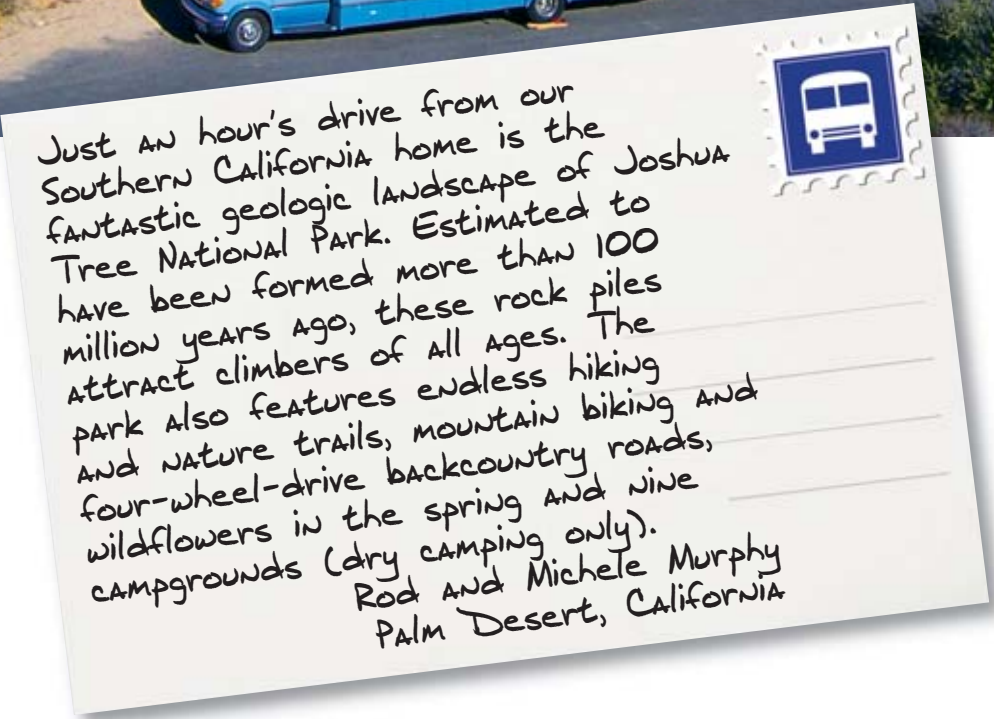 Just an hour's drive from our
Southern California home is the
fantastic geologic landscape of Joshua
Tree National Park. Estimated to
have been formed more than 100
million years ago, these rock piles
attract climbers of all ages. The
park also features endless hiking
and nature trails, mountain biking and
four-wheel-drive backcountry roads,
wildflowers in the spring and nine
campgrounds (dry camping only).
Rod and Michele Murphy
Palm Desert, California